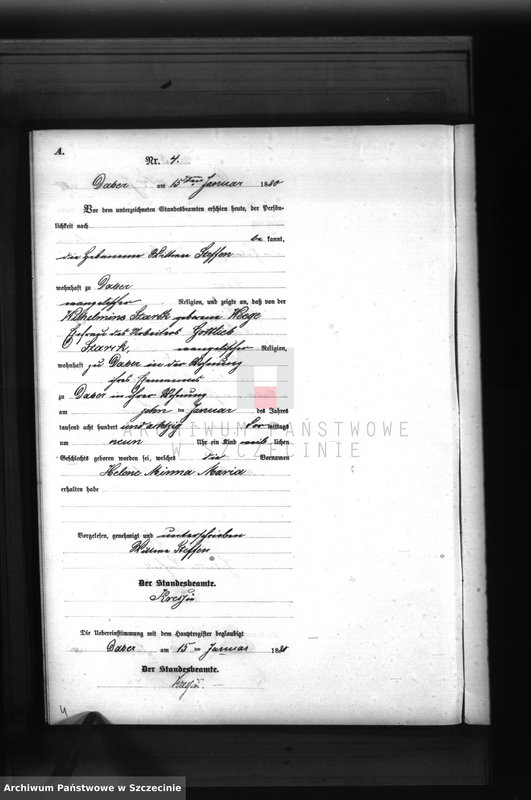 A.
Nr. 4.
Daber am 15ten Januar 1880
Vor dem unterzeichneten Standesbeamten erschien heute, der Persön-
lichkeit nach
be kannt,
die Hebamme Wittwe Steffen
wohnhaft zu Daber
evangelischer Religion, und zeigte an, daß von der
Wilhelmine Starck geborene Wege
Ehefrau des Arbeiters Gottlieb
Starck, evangelischer Religion,
wohnhaft zu Daber in der Wohnung
ihres Ehemannes
zu Daber in ihrer Wohnung
am zehn ten Januar des Jahres
tausend acht hundert und achtzig Vor mittags
um neun Uhr ein Kind weib lichen
Geschlechts geboren worden sei, welches die Vornamen
Helene Minna Maria
erhalten habe
Vorgelesen, genehmigt und unterschrieben
Wittwe Steffen
Der Standesbeamte.
Die Uebereinstimmung mit dem Hauptregister beglaubigt
Daber am 15 ten Januar 1880
Der Standesbeamte.
4
ARCHIWUM PAŃSTWOWE
W SZCZECINIE
Archiwum Państwowe w Szczecinie